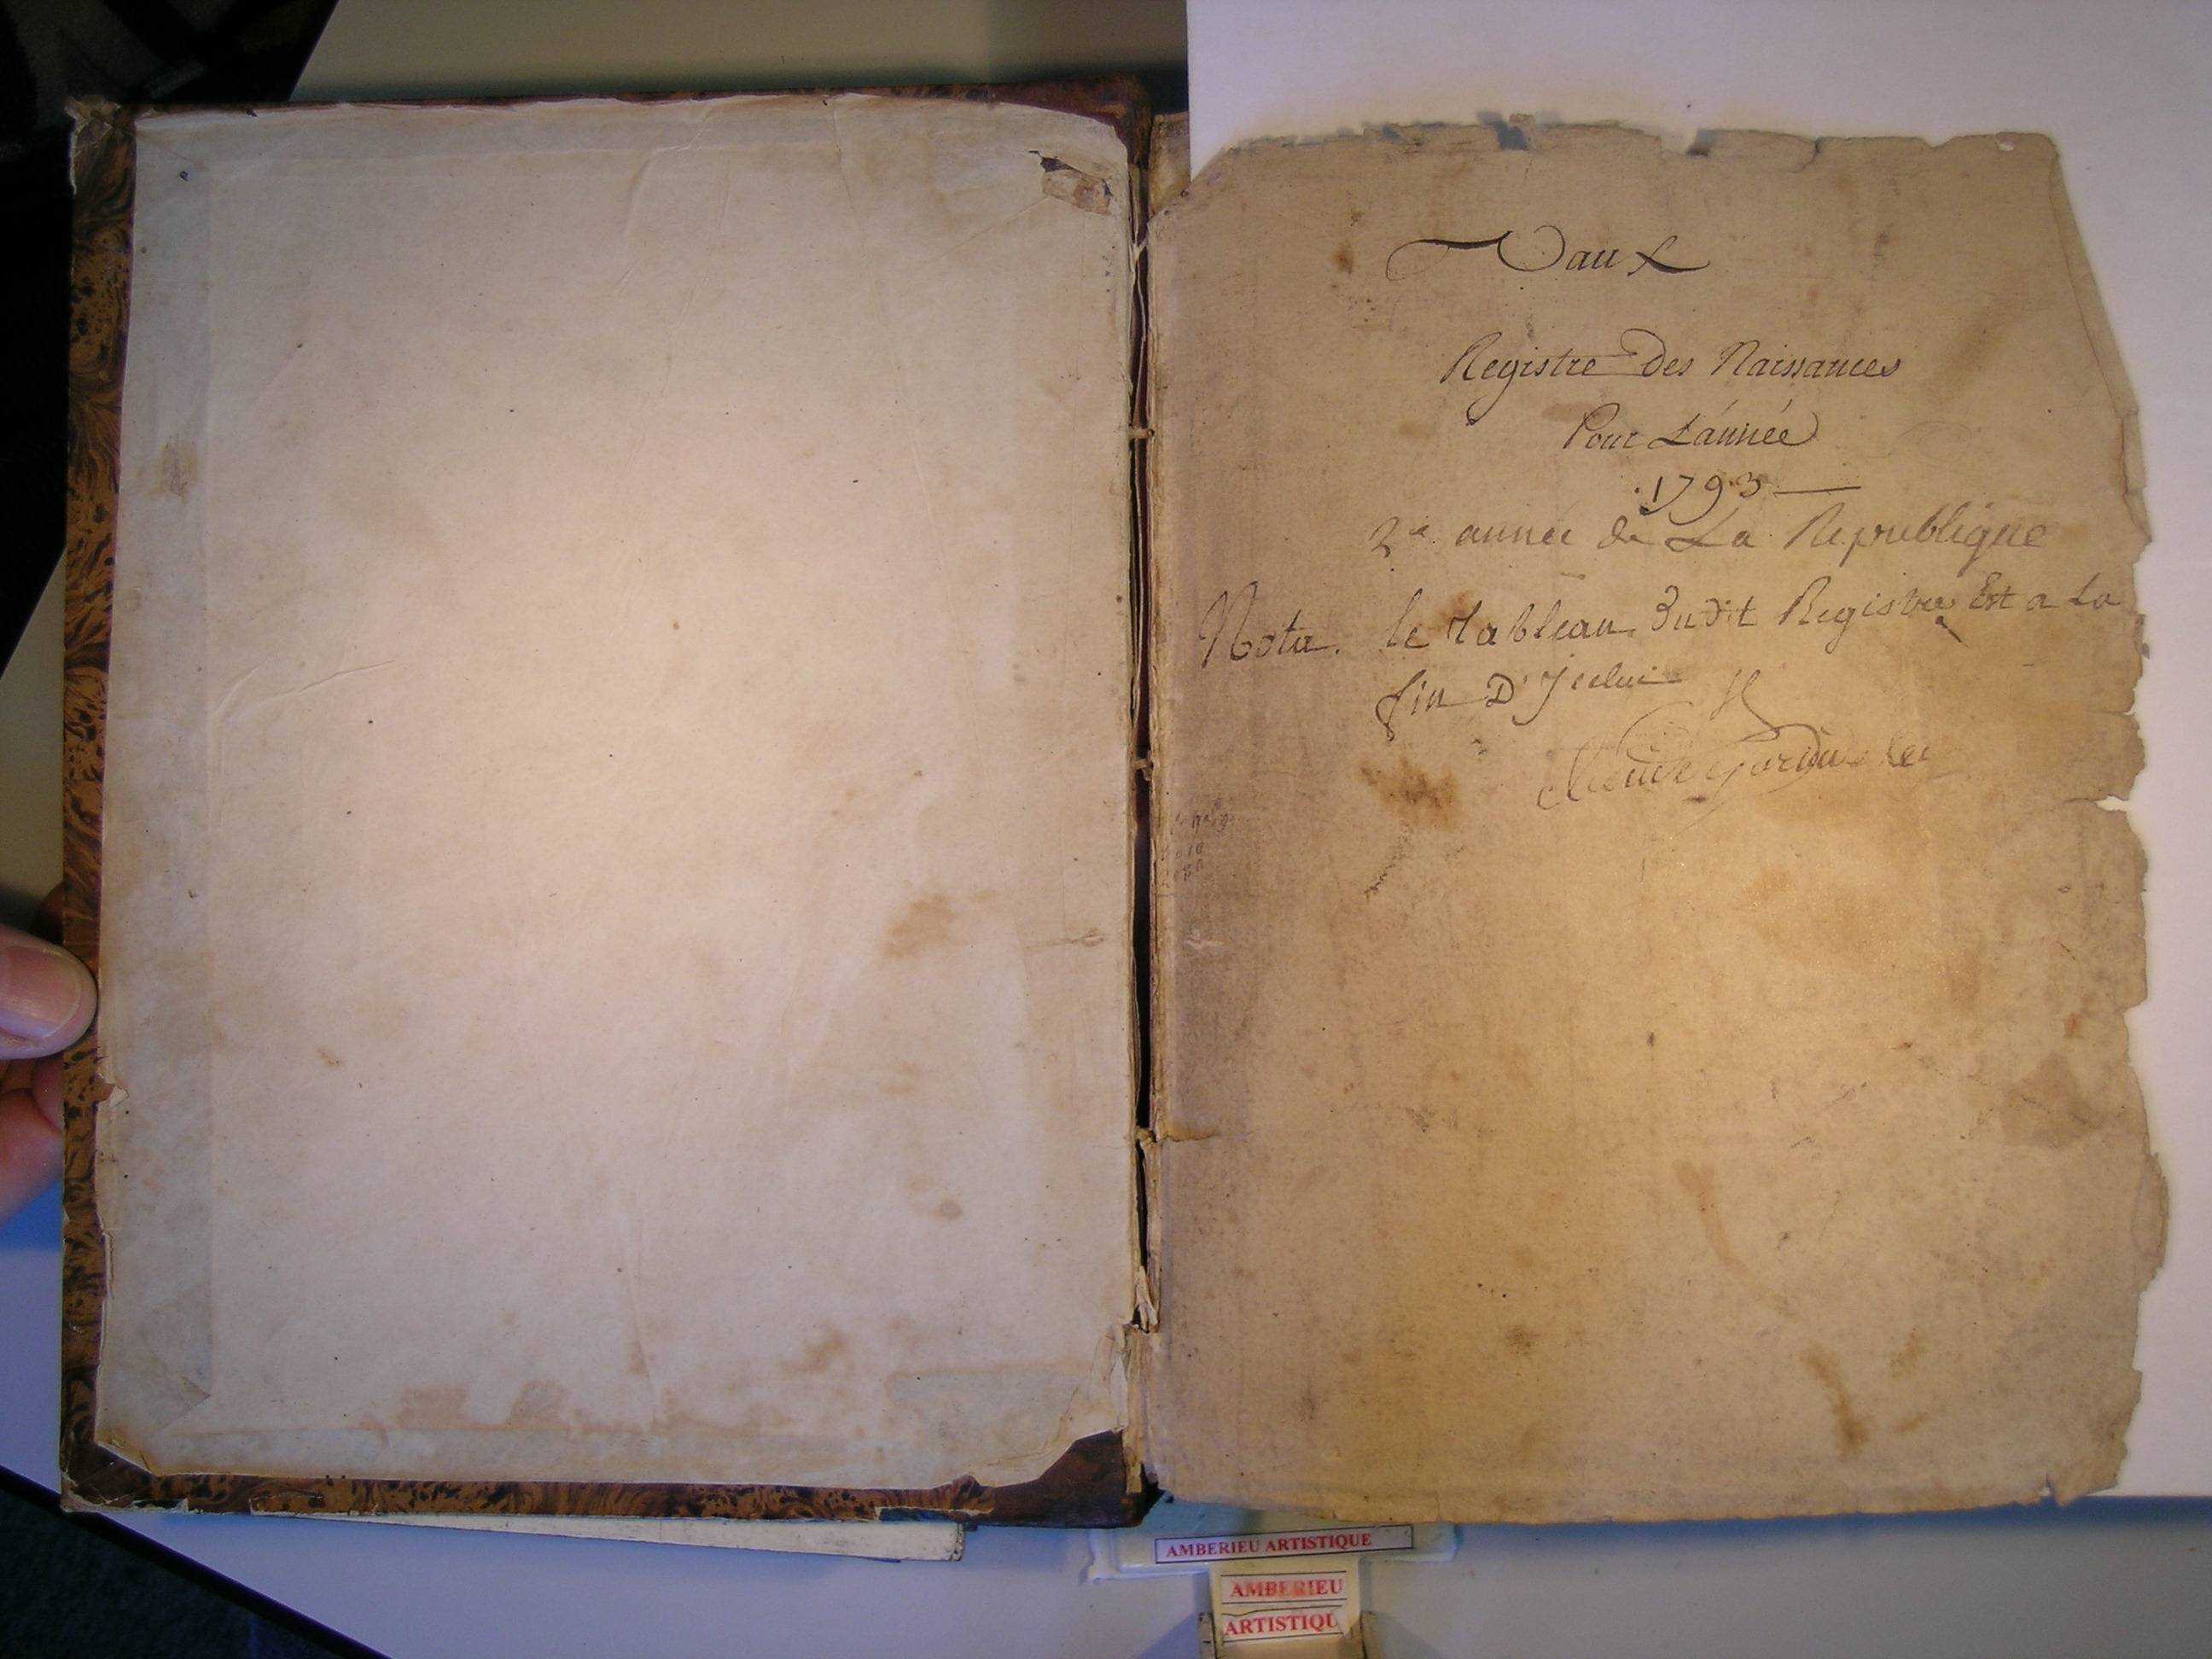 Vaux
Registre Des Naissances
Pour L'année
1793
2e année de La Republique
Nota. le tableau dudit Registre Est a La
fin D'Jcelui
AMBERIEU ARTISTIQUE
AMBERIEU
ARTISTIQU